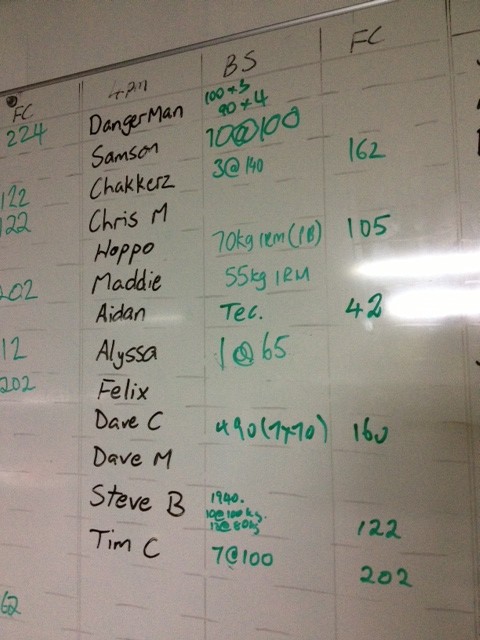 FC 4pm BS FC
224 DangerMan 100 x 3
90 x 4
Samson 10@100 162
122 Chakkerz 3@140
122 Chris M 105
Hoppo 70kg 1RM (PB)
202 Maddie 55kg 1RM
Aidan Tec. 42
12 Alyssa 1@65
202 Felix
Dave C 490 (7x70) 160
Dave M
Steve B 1940.
10@100kg.
@80kg 122
Tim C 7@100 202
62